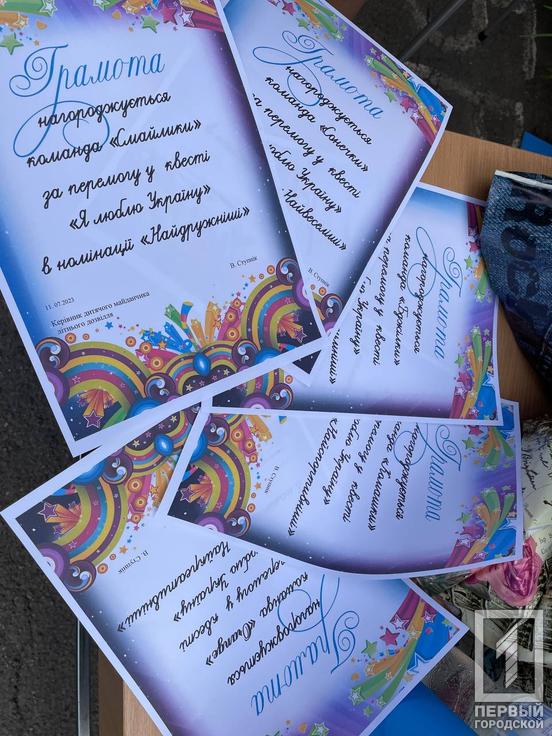 Грамота
нагороджується
команда «Смайлики»
за перемогу у квесті
«Я люблю Україну»
в номінації «Найдружніші»
В. Ступнік
11. 07.2023
Керівник дитячого майданчика
літнього дозвілля
Грамота
нагороджується
команда «Сонечки»
за перемогу у квесті
люблю Україну»
«Найвеселіші»
В. Ступнік
Грамота
нагороджується
команда «Дружки»
перемогу у квесті
Україну»
Грамота
нагороджується
перемогу у квесті
Україну»
«Найспортивніші»
В. Ступнік
Грамота
нагороджується
команда «Orange»
перемогу у квесті
Україну»
Найкреативніші»
В. Ступнік
1
ПЕРВЫЙ
ГОРОДСКОЙ